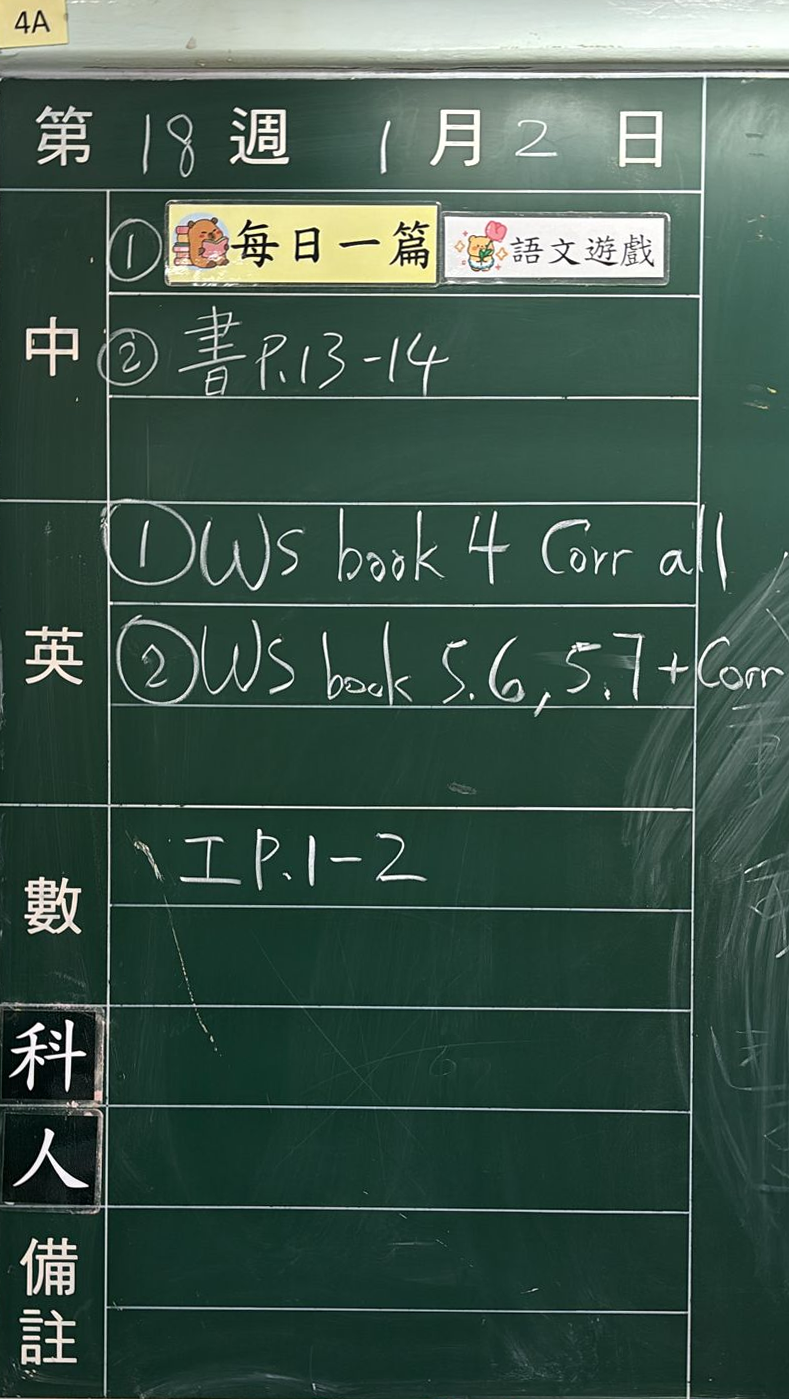 4A
第 18 週 1 月 2 日
中
① 每日一篇 語文遊戲
② 書 P.13-14
英
① WS book 4 Corr all
② WS book 5.6, 5.7 + Corr
數
工 P.1-2
科
人
備註